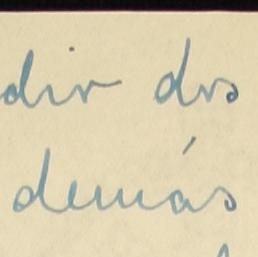 dir dos
demás